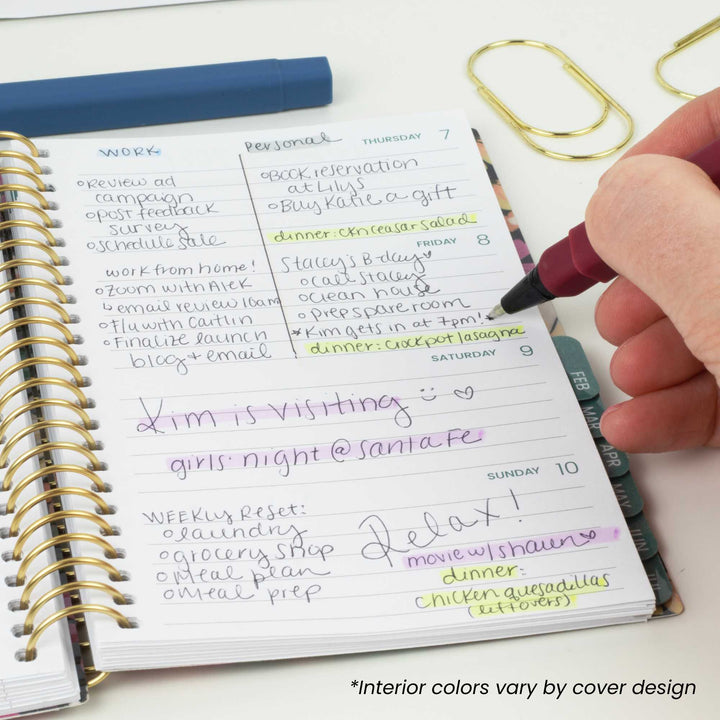 WORK
Personal
THURSDAY 7
o Review ad
campaign
o Post feedback
survey
o Schedule sale
o Book reservation
at Lilys
o Buy Katie a gift
dinner: ckn ceasar salad
FRIDAY 8
work from home!
o Zoom with Alek
↳ email review 10am
o F/u with Caitlin
o Finalize launch
blog + email
Stacey's B-day ♡
o call Stacey
o clean house
o prep spare room
* Kim gets in at 7pm! *
dinner: crockpot lasagna
SATURDAY 9
Kim is visiting :) ♡
girls' night @ Santa Fe
SUNDAY 10
WEEKLY Reset:
o laundry
o grocery shop
o Meal plan
o Meal prep
Relax!
movie w/ shaun ♡
dinner:
chicken quesadillas
(leftovers)
FEB
MAR
APR
MAY
JUN
*Interior colors vary by cover design